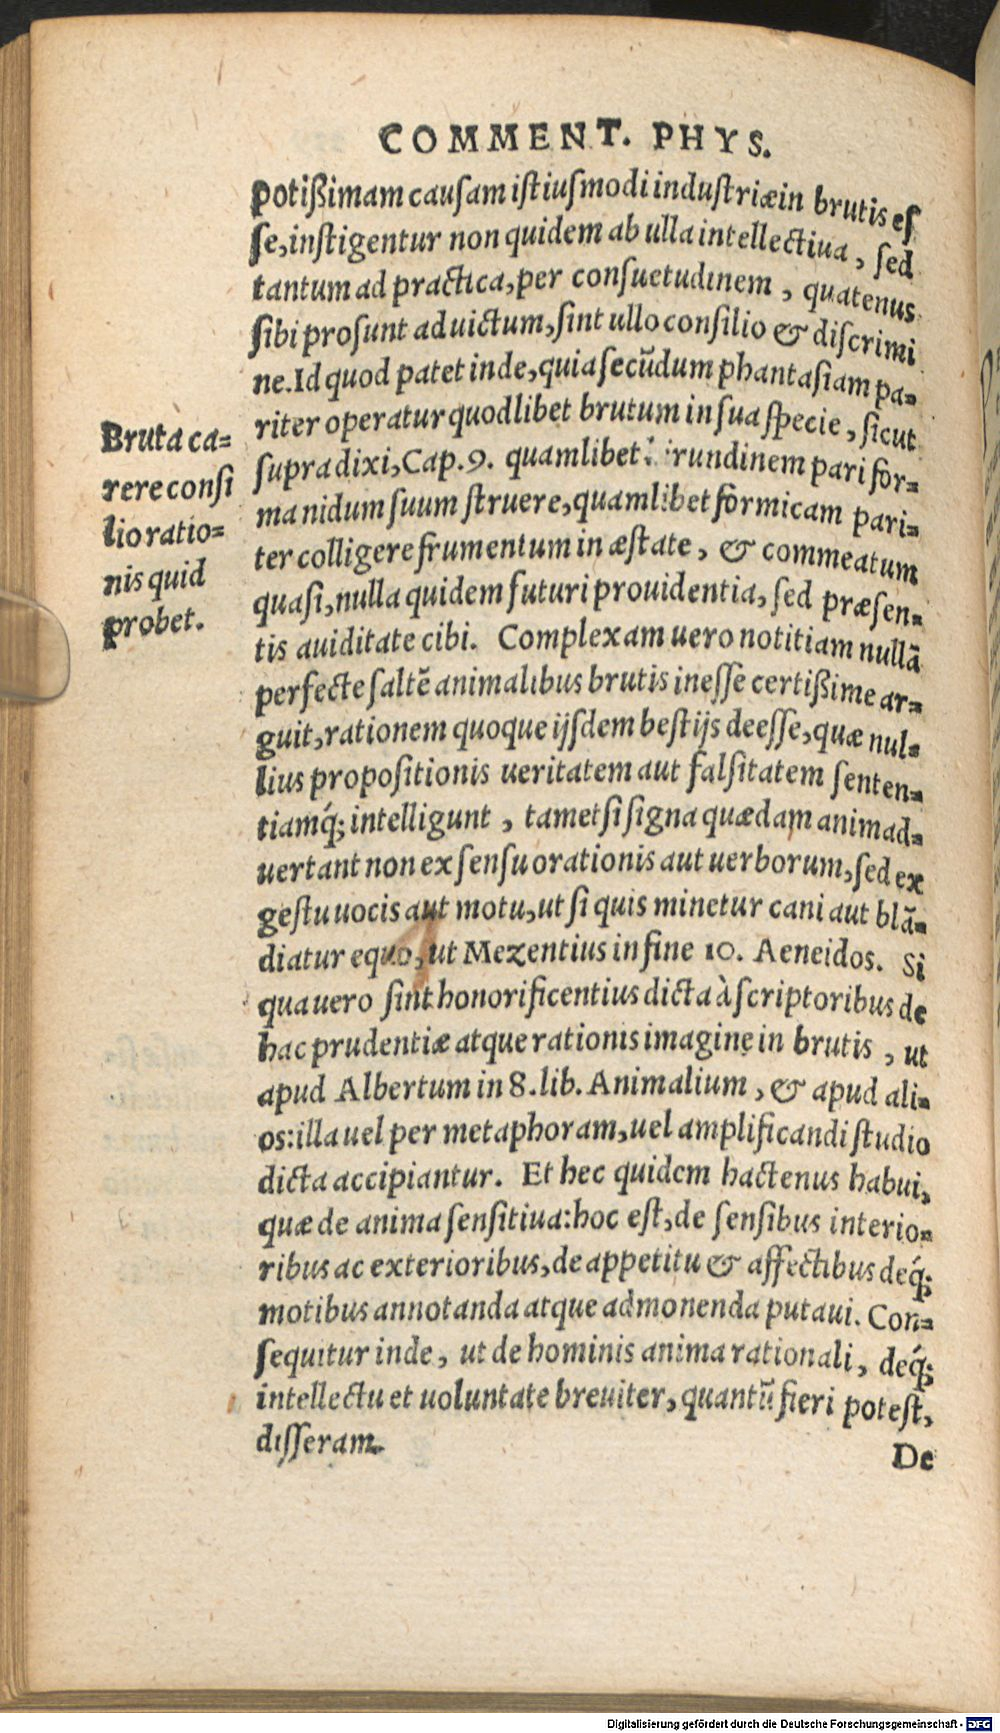 COMMENT. PHYS.
potißimam causam istiusmodi industriæ in brutis es
se, instigentur non quidem ab ulla intellectiua, sed
tantum ad practica, per consuetudinem, quatenus
sibi prosunt ad uictum, sint ullo consilio & discrimi
ne. Id quod patet inde, quia secũdum phantasiam pa=
riter operatur quodlibet brutum in sua specie, sicut
supra dixi, Cap. 9. quamlibet rundinem pari for=
ma nidum suum struere, quamlibet formicam pari=
ter colligere frumentum in æstate, & commeatum
quasi, nulla quidem futuri prouidentia, sed præsen=
tis auiditate cibi. Complexam uero notitiam nullã
perfecte saltẽ animalibus brutis inesse certißime ar=
guit, rationem quoque ijsdem bestijs deesse, quæ nul=
lius propositionis ueritatem aut falsitatem senten=
tiamq́; intelligunt, tametsi signa quædam animad=
uertant non ex sensu orationis aut uerborum, sed ex
gestu uocis aut motu, ut si quis minetur cani aut blã=
diatur equo, ut Mezentius in fine 10. Aeneidos. Si
qua uero sint honorificentius dicta à scriptoribus de
hac prudentiæ atque rationis imagine in brutis, ut
apud Albertum in 8. lib. Animalium, & apud ali=
os: illa uel per metaphoram, uel amplificandi studio
dicta accipiantur. Et hec quidem hactenus habui,
quæ de anima sensitiua: hoc est, de sensibus interio=
ribus ac exterioribus, de appetitu & affectibus deq́;
motibus annotanda atque admonenda putaui. Con=
sequitur inde, ut de hominis anima rationali, deq́;
intellectu et uoluntate breuiter, quantũ fieri potest,
disseram.
De
Bruta ca=
rere consi
lio ratio=
nis quid
probet.
Digitalisierung gefördert durch die Deutsche Forschungsgemeinschaft - DFG